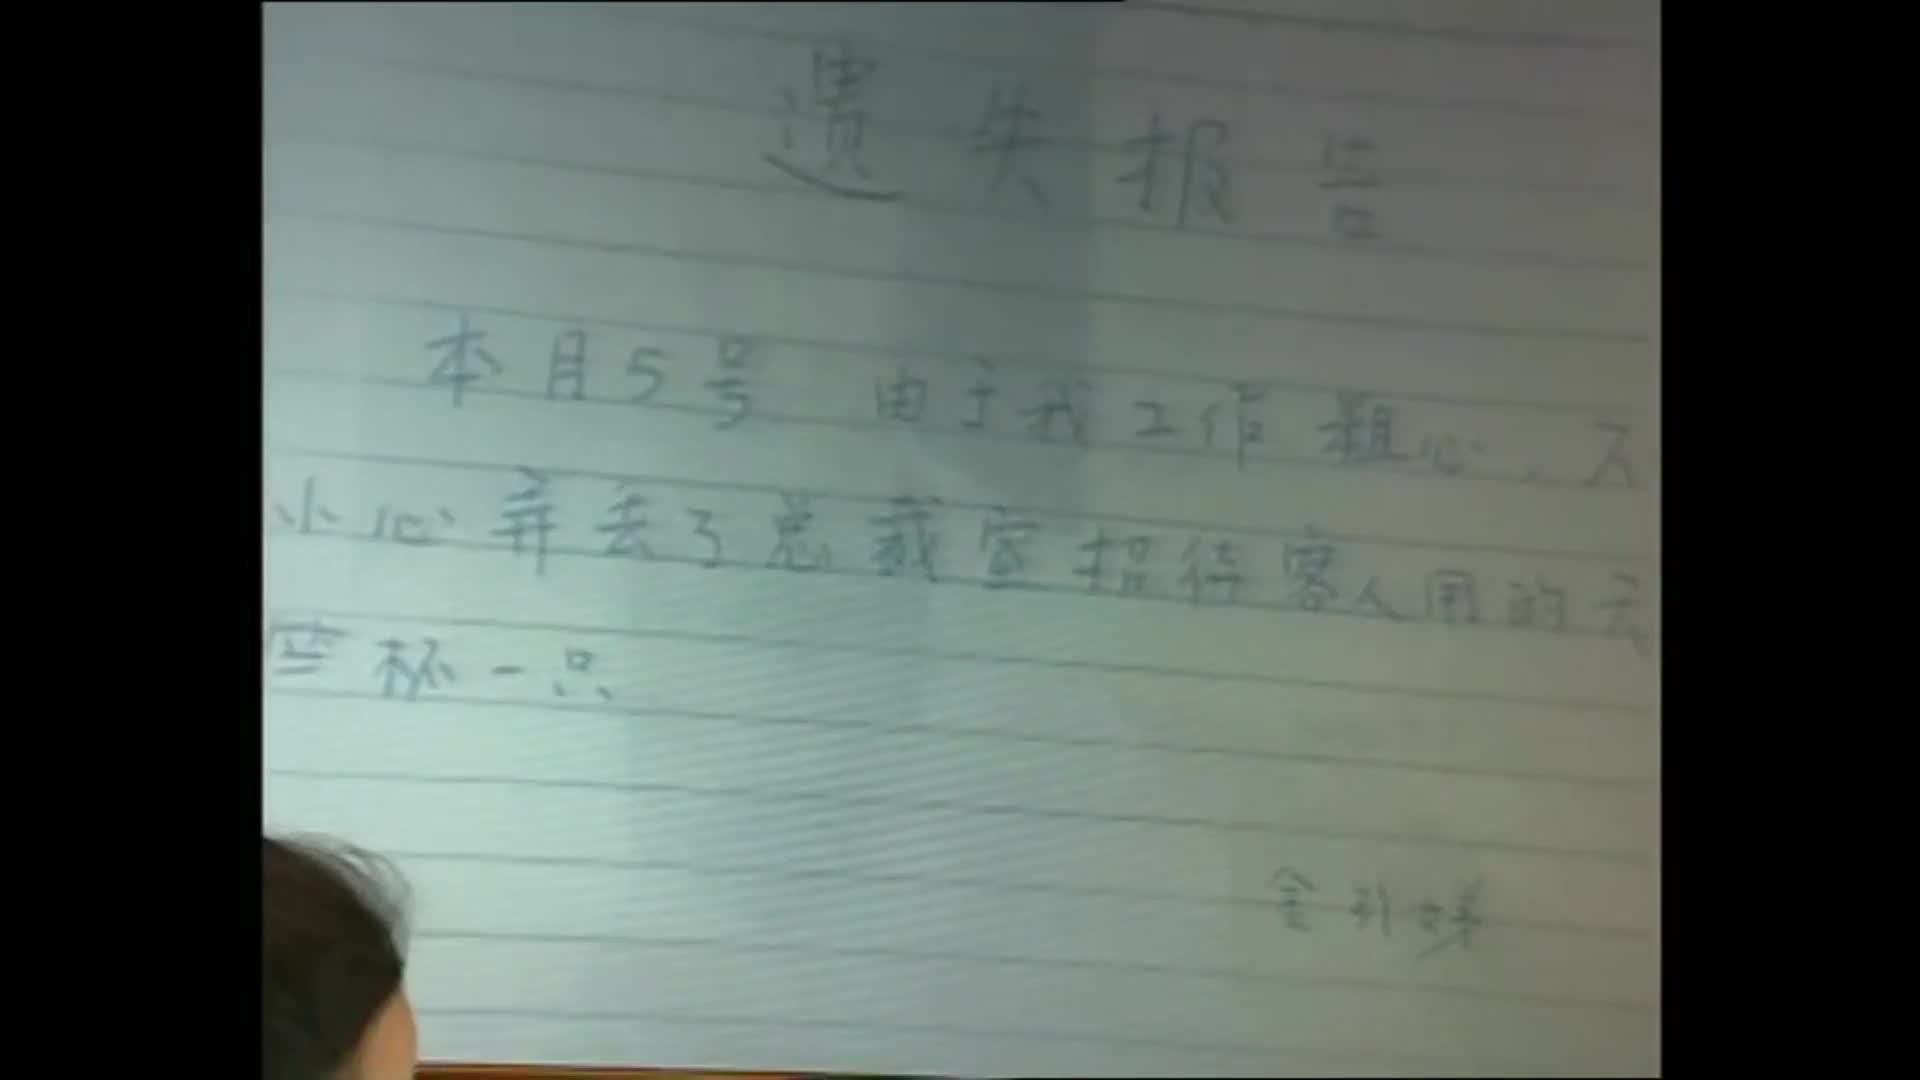 遗失报告
本月5号 由于我工作粗心，不
小心弄丢了总裁室招待客人用的
空杯一只
金引娣